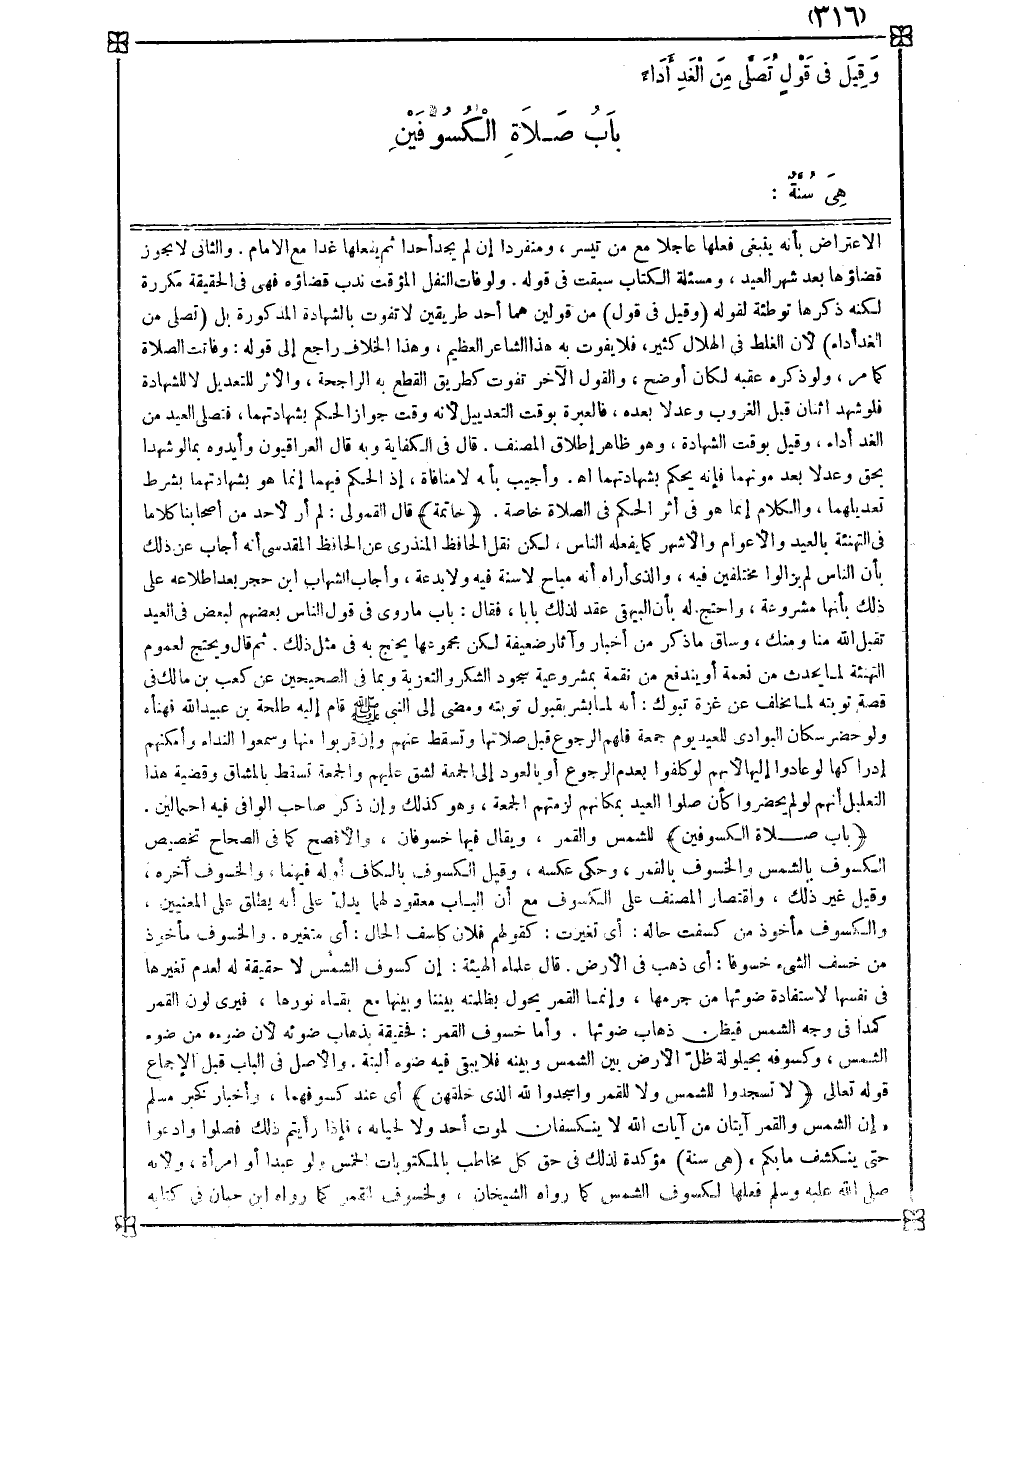 (٣١٦)
وَقِيلَ فِى قَوْلٍ تُصَلَّى مِنَ الْغَدِ أَدَاءً
بَابُ صَلَاةِ الْكُسُوفَيْنِ
هِىَ سُنَّةٌ :
الاعتراض بأنه ينبغى فعلها عاجلا مع من تيسر ، ومنفردا إن لم يجد أحدا ثم يفعلها غدا مع الامام . والثانى لا يجوز
قضاؤها بعد شهر العيد ، ومسئلة الكتاب سبقت فى قوله . ولو فات النفل المؤقت ندب قضاؤه فهى فى الحقيقة مكررة
لكنه ذكرها توطئة لقوله (وقيل فى قول) من قولين هما أحد طريقين لاتفوت بالشهادة المذكورة بل (تصلى من
الغد أداء) لأن الغلط فى الهلال كثير، فلا يفوت به هذا الشاعر العظيم ، وهذا الخلاف راجع إلى قوله : وفاتت الصلاة
كما مر ، ولو ذكره عقبه لكان أوضح ، والقول الآخر تفوت كطريق القطع به الراجحة ، والاثر للتعديل لا للشهادة
فلو شهد اثنان قبل الغروب وعدلا بعده ، فالعبرة بوقت التعديل لأنه وقت جواز الحكم بشهادتهما ، فتصلى العيد من
الغد أداء ، وقيل بوقت الشهادة ، وهو ظاهر إطلاق المصنف . قال فى الكفاية وبه قال العراقيون وأيدوه بمالو شهدا
بحق وعدلا بعد موتهما فإنه يحكم بشهادتهما اه . وأجيب بأنه لامنافاة ، إذ الحكم فيهما إنما هو بشهادتهما بشرط
تعديلهما ، والكلام إنما هو فى أثر الحكم فى الصلاة خاصة . ﴿خاتمة﴾ قال القمولى : لم أر لاحد من أصحابنا كلاما
فى التهنئة بالعيد والاعوام والاشهر كما يفعله الناس ، لكن نقل الحافظ المنذرى عن الحافظ المقدسى أنه أجاب عن ذلك
بأن الناس لم يزالوا مختلفين فيه ، والذى أراه أنه مباح لاسنة فيه ولا بدعة ، وأجاب الشهاب ابن حجر بعد اطلاعه على
ذلك بأنها مشروعة ، واحتج له بأن البيهقى عقد لذلك بابا ، فقال : باب ماروى فى قول الناس بعضهم لبعض فى العيد
تقبل الله منا ومنك ، وساق ماذكر من أخبار وآثار ضعيفة لكن مجموعها يحتج به فى مثل ذلك . ثم قال ويحتج لعموم
التهنئة لما يحدث من نعمة أو يندفع من نقمة بمشروعية سجود الشكر والتعزية وبما فى الصحيحين عن كعب بن مالك فى
قصة توبته لما تخلف عن غزة تبوك : أنه لما بشر بقبول توبته ومضى إلى النبى ﷺ قام إليه طلحة بن عبيدالله فهنأه
ولو حضر سكان البوادى للعيد يوم جمعة فلهم الرجوع قبل صلاتها وتسقط عنهم وإن قربوا منها وسمعوا النداء وأمكنهم
إدراكها لو عادوا إليها لانهم لو كلفوا بعدم الرجوع أو بالعود إلى الجمعة لشق عليهم والجمعة تسقط بالمشاق وقضية هذا
التعليل أنهم لو لم يحضروا كأن صلوا العيد بمكانهم لزمتهم الجمعة ، وهو كذلك وإن ذكر صاحب الوافى فيه احتمالين .
﴿باب صلاة الكسوفين﴾ للشمس والقمر ، ويقال فيها خسوفان ، والأفصح كما فى الصحاح تخصيص
الكسوف بالشمس والخسوف بالقمر ، وحكى عكسه ، وقيل الكسوف بالكاف أوله فيهما ، والخسوف آخره ،
وقيل غير ذلك ، واقتصار المصنف على الكسوف مع أن الباب معقود لهما يدل على أنه يطلق على المعنيين ،
والكسوف مأخوذ من كسفت حاله : أى تغيرت : كقولهم فلان كاسف الحال : أى متغيره . والخسوف مأخوذ
من خسف الشىء خسوفا : أى ذهب فى الارض . قال علماء الهيئة : إن كسوف الشمس لا حقيقة له لعدم تغيرها
فى نفسها لاستفادة ضوئها من جرمها ، وإنما القمر يحول بظلمته بيننا وبينها مع بقاء نورها ، فيرى لون القمر
كمدا فى وجه الشمس فيظن ذهاب ضوئها . وأما خسوف القمر : فحقيقة بذهاب ضوئه لان ضوءه من ضوء
الشمس ، وكسوفه بحيلولة ظل الارض بين الشمس وبينه فلا يبقى فيه ضوء ألبتة . والاصل فى الباب قبل الإجماع
قوله تعالى ﴿ لا تسجدوا للشمس ولا للقمر واسجدوا لله الذى خلقهن ﴾ أى عند كسوفهما ، وأخبار كخبر مسلم
« إن الشمس والقمر آيتان من آيات الله لا ينكسفان لموت أحد ولا لحياته ، فإذا رأيتم ذلك فصلوا وادعوا
حتى ينكشف مابكم » (هى سنة) مؤكدة لذلك فى حق كل مخاطب بالمكتوبات الخمس ولو عبدا أو امرأة ، ولأنه
صلى الله عليه وسلم فعلها لكسوف الشمس كما رواه الشيخان ، ولخسوف القمر كما رواه ابن حبان فى كتابه